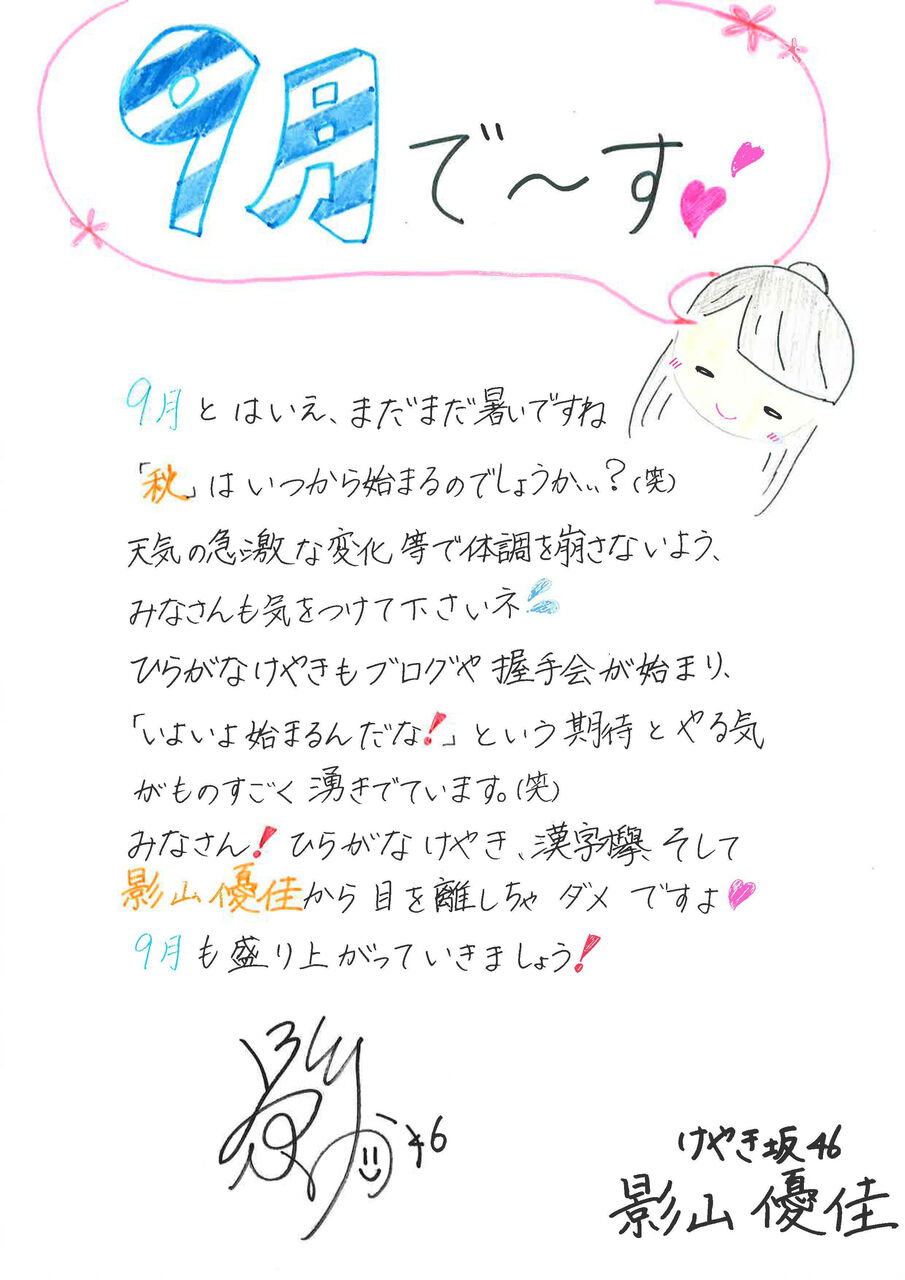 9月で〜す
9月とはいえ、まだまだ暑いですね
「秋」はいつから始まるのでしょうか...?(笑)
天気の急激な変化等で体調を崩さないよう、
みなさんも気をつけて下さいネ
ひらがなけやきもブログや握手会が始まり、
「いよいよ始まるんだな!」という期待とやる気
がものすごく湧きでています。(笑)
みなさん!ひらがなけやき、漢字欅、そして
影山優佳から目を離しちゃダメですよ
9月も盛り上がっていきましょう!
46
けやき坂46
影山優佳